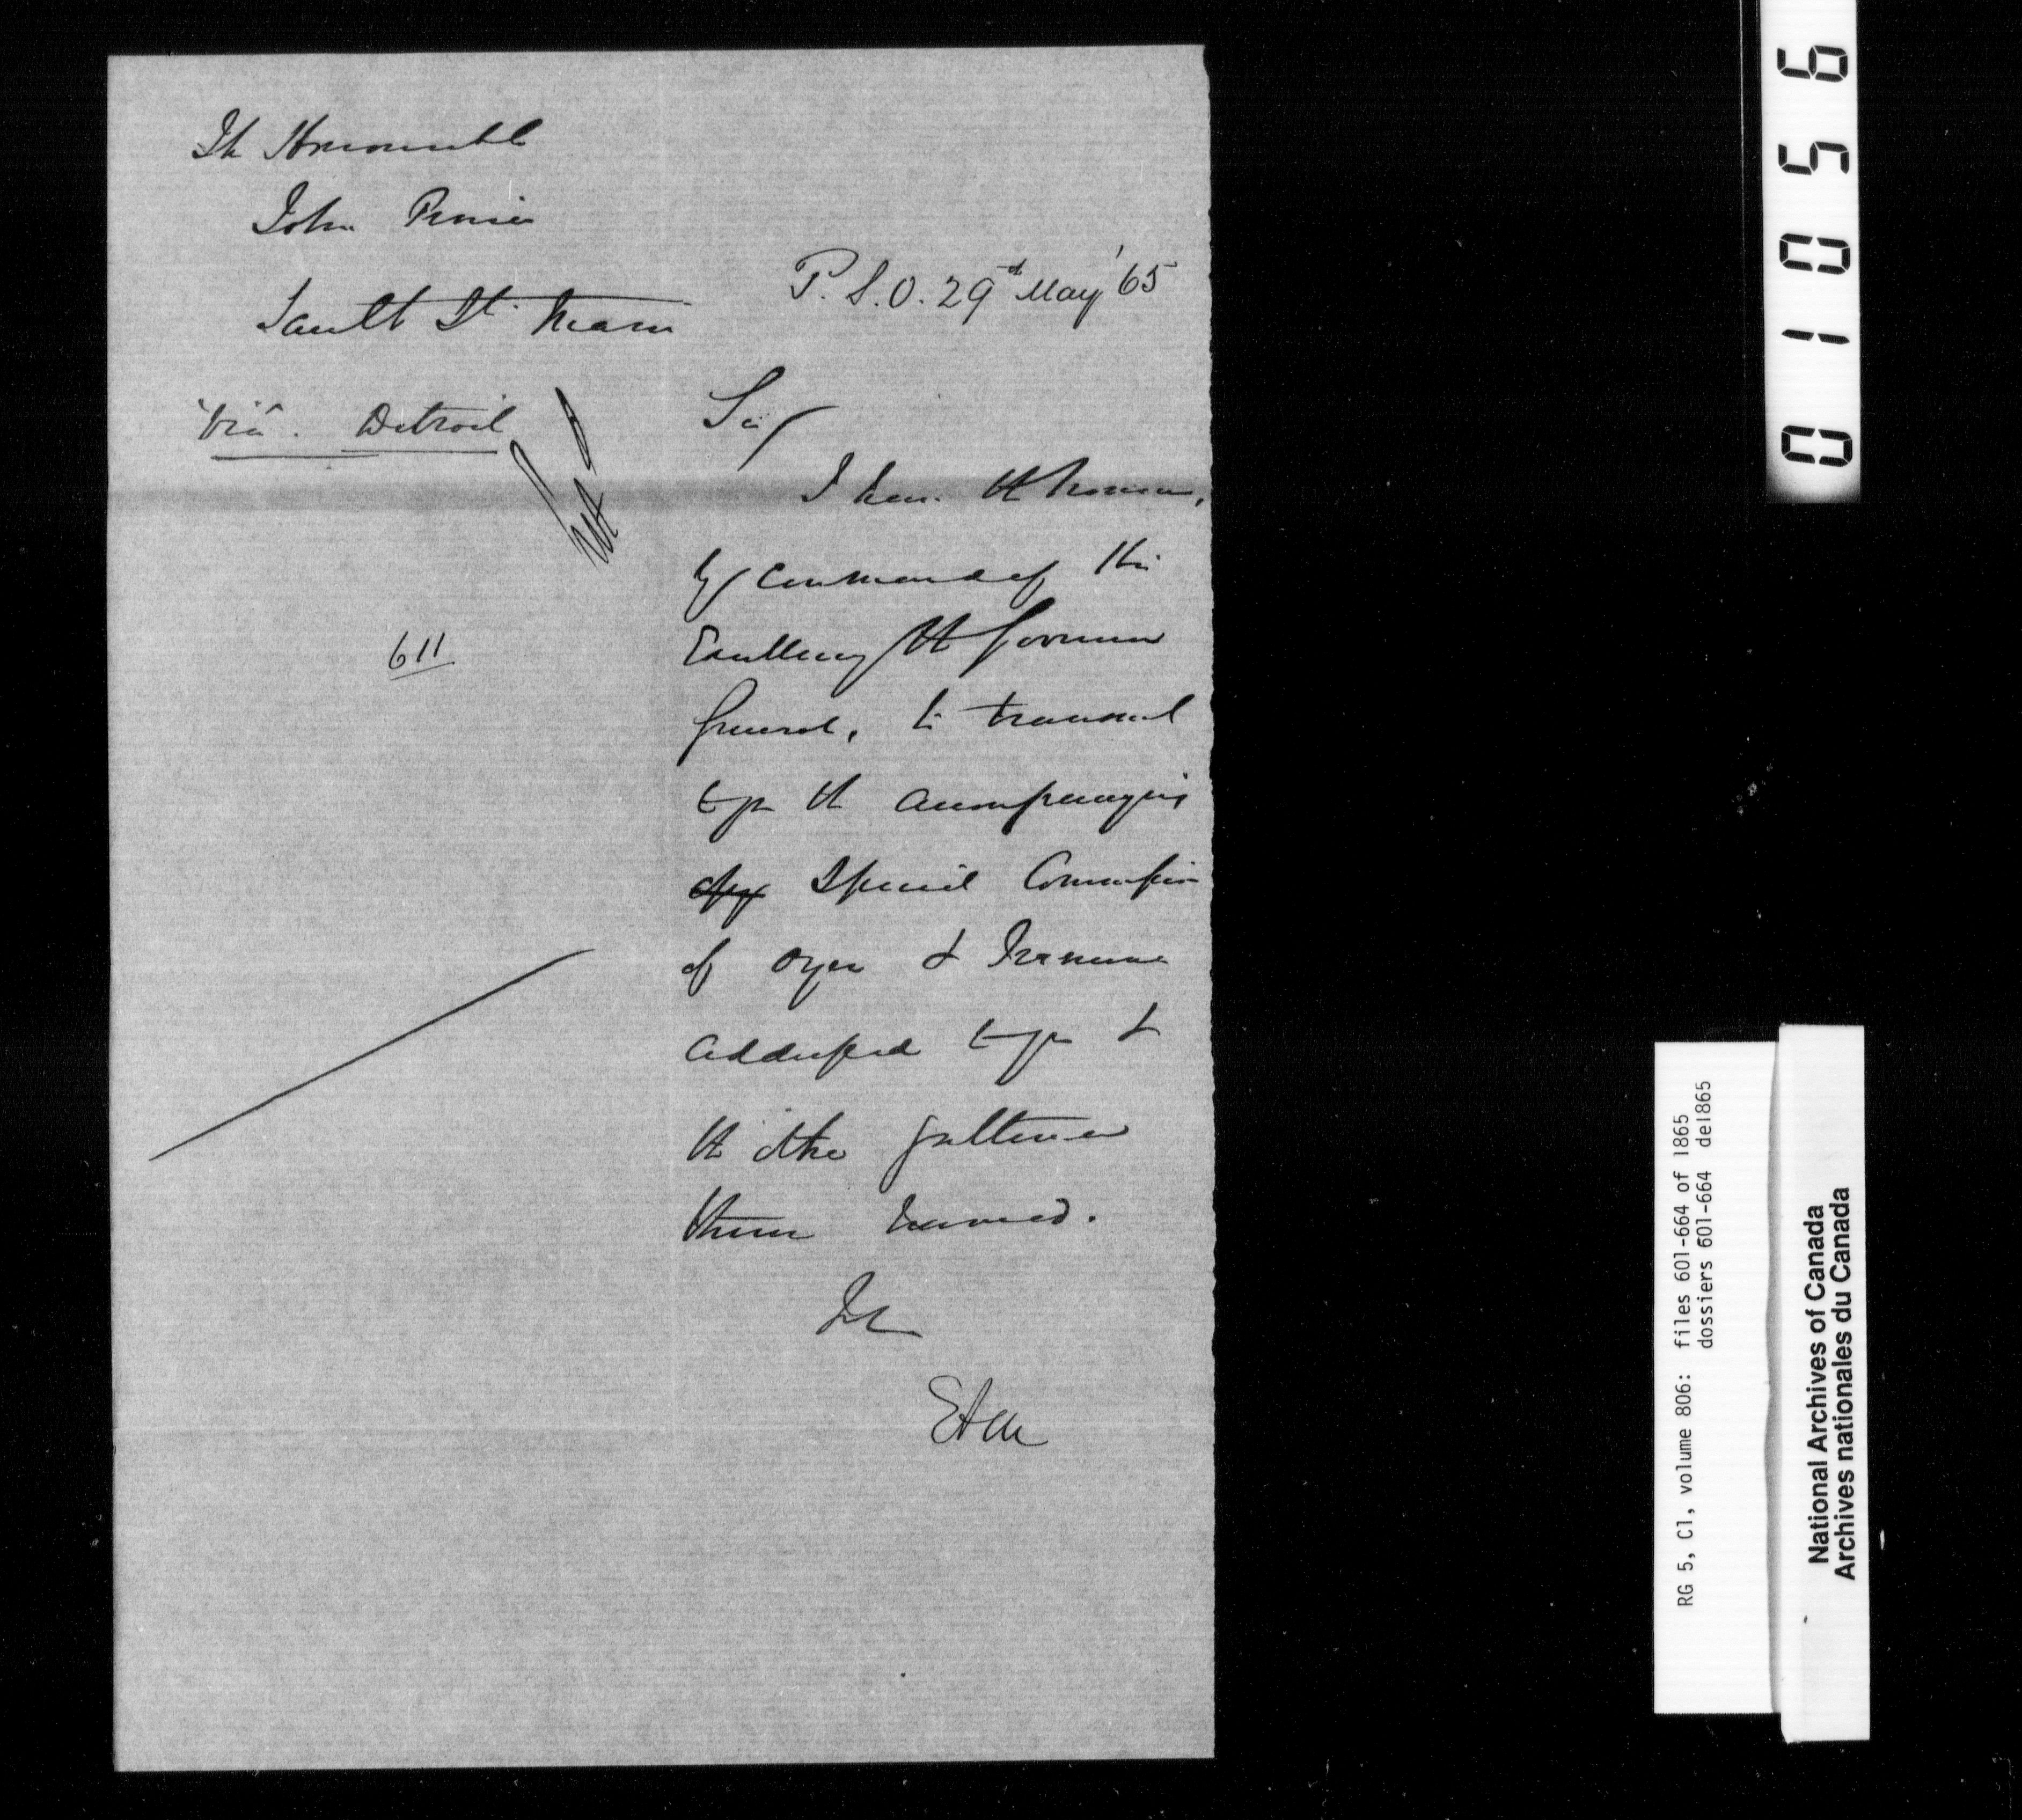 The Honourable
John Prince
Sault Ste. Marie
Viâ. Detroit
P.S.O. 29th May '65
Sir/
I have the honour,
by command of His
Excellency the Governor
General, to transmit
to you the accompanying
copy Special Commission
of Oyer & Terminer
addressed to you &
the other gentlemen
therein named.
I h
EAM
611
01056
RG 5, C1, volume 806: files 601-664 of 1865
dossiers 601-664 de1865
National Archives of Canada
Archives nationales du Canada